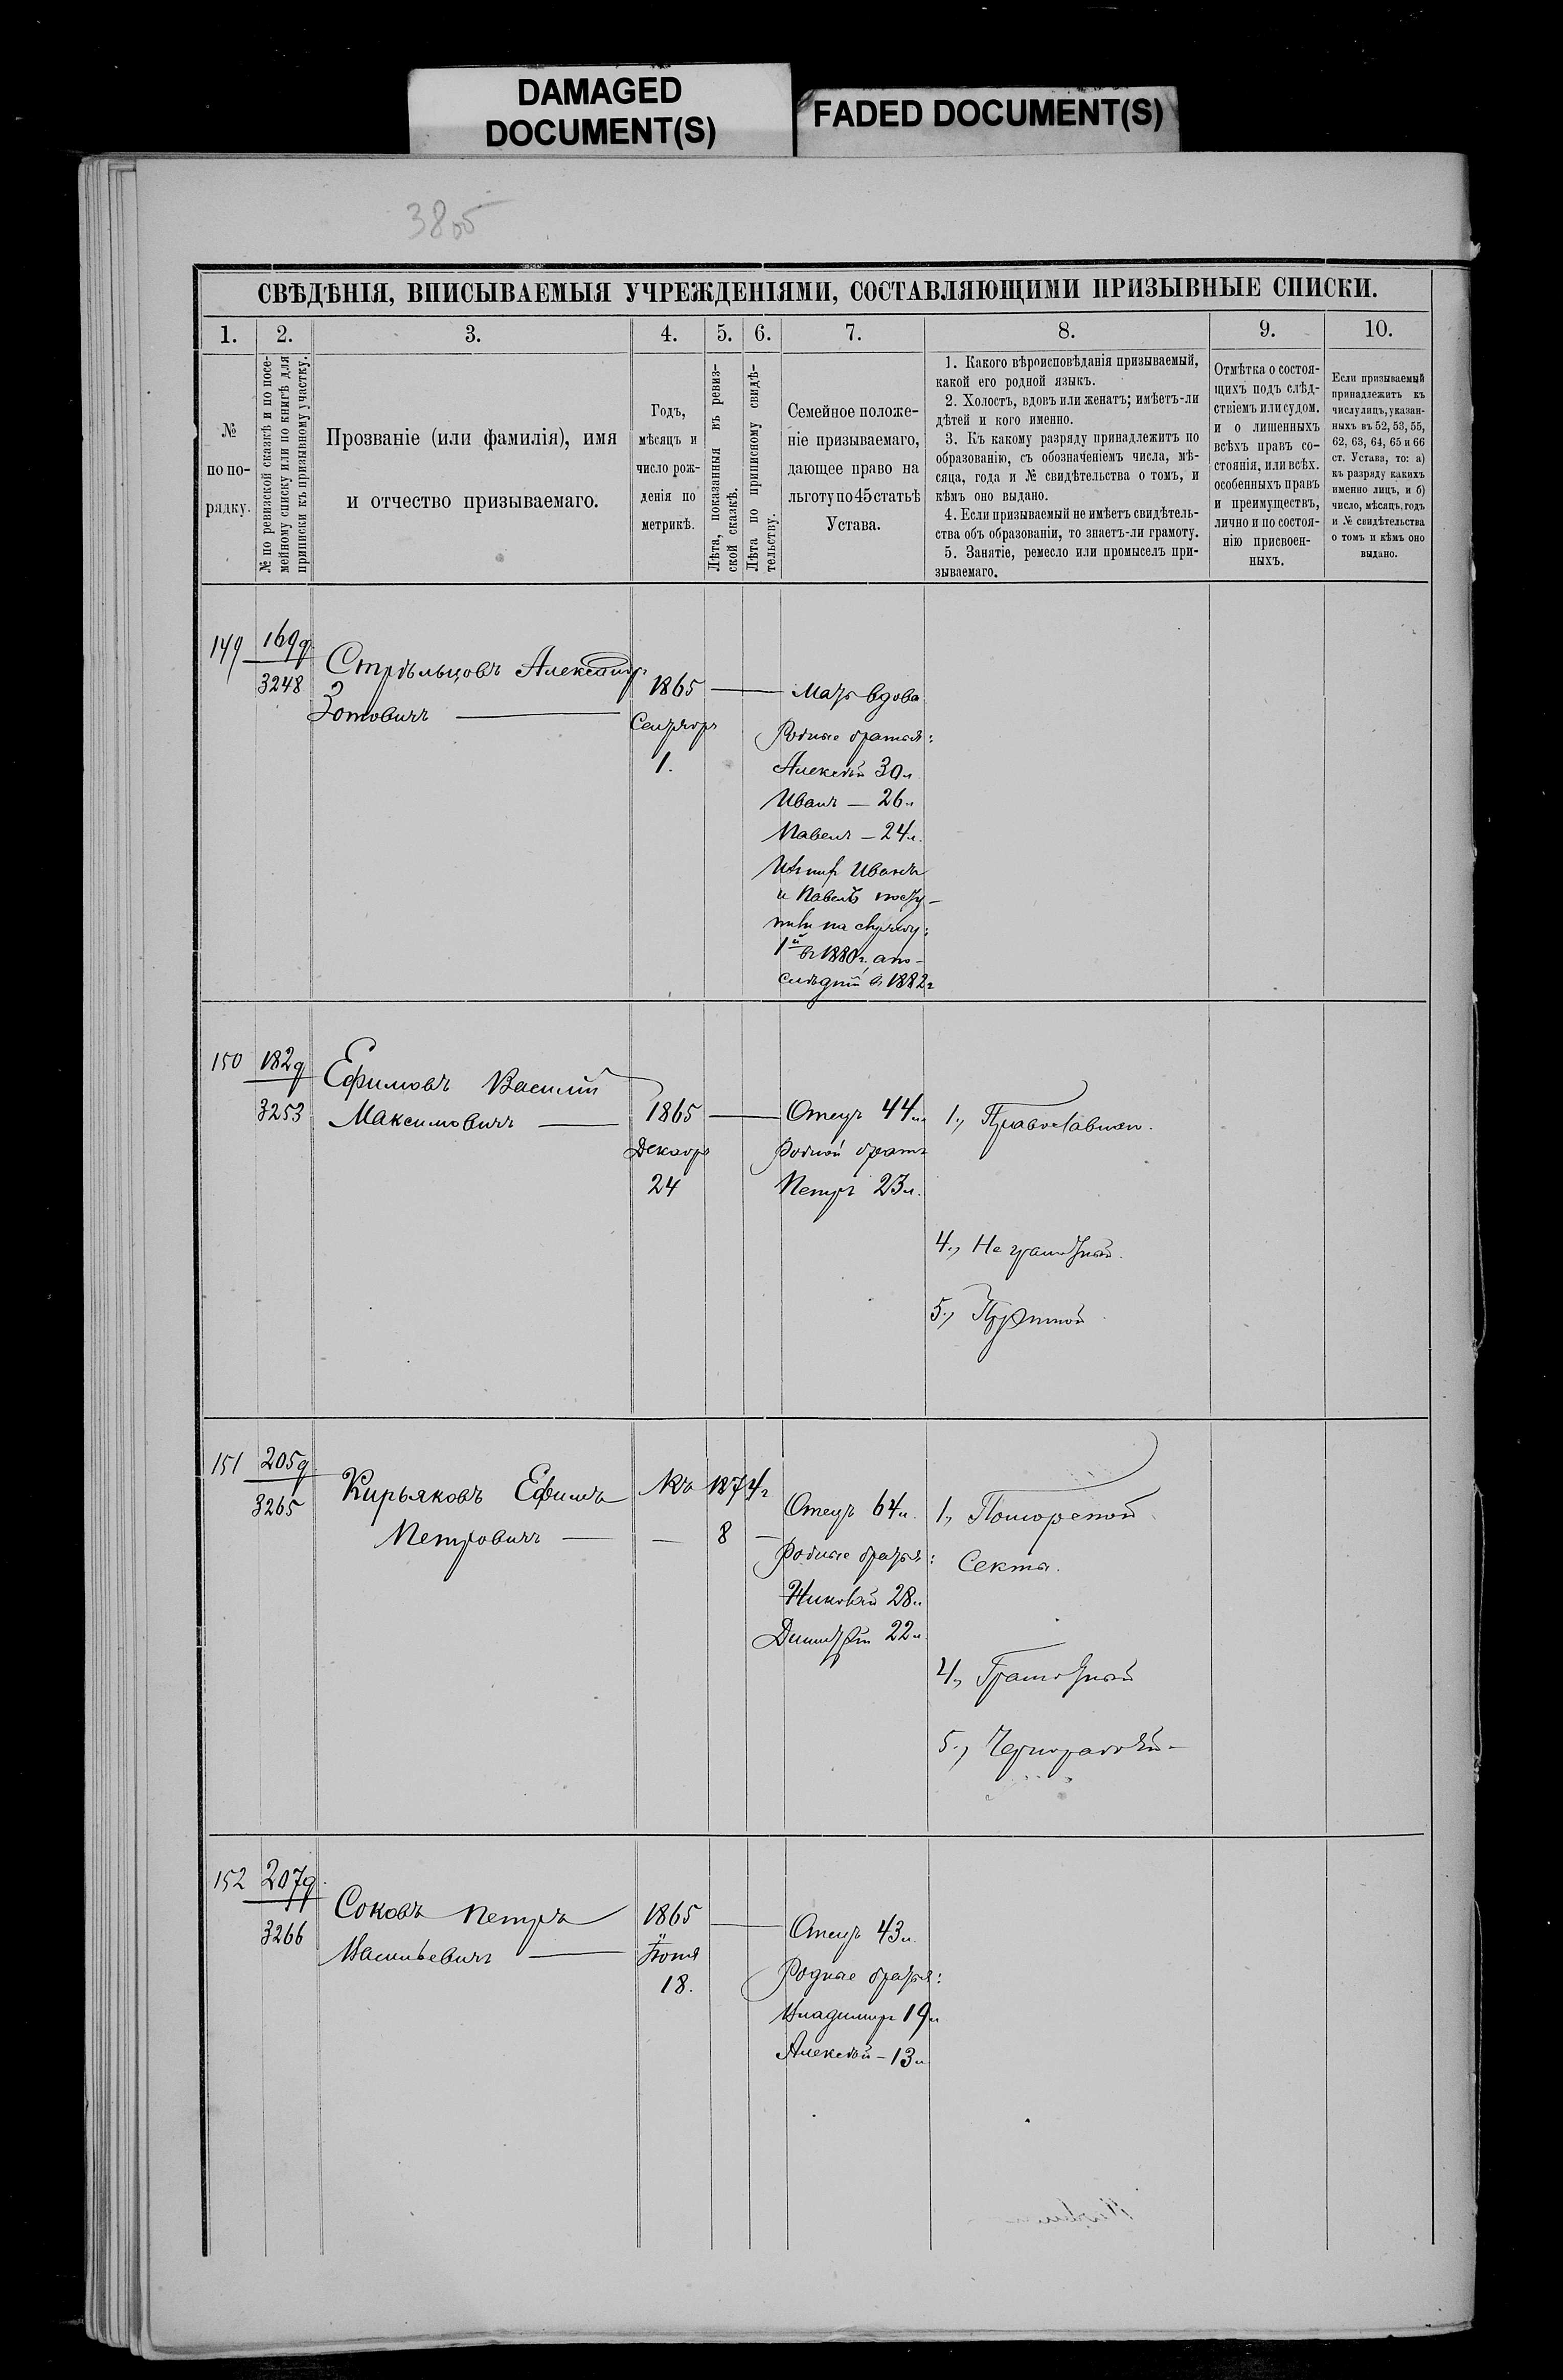 DAMAGED
DOCUMENT(S)
FADED DOCUMENT(S)
СВѢДѢНІЯ, ВПИСЫВАЕМЫЯ УЧРЕЖДЕНІЯМИ, СОСТАВЛЯЮЩИМИ ПРИЗЫВНЫЕ СПИСКИ.
1. 2. 3. 4. 5. 6. 7. 8. 9. 10.
№
по по-
рядку.
№ по ревизской сказкѣ и по посе-
мейному списку или по книгѣ для
приписки къ призывному участку.
Прозваніе (или фамилія), имя
и отчество призываемаго.
Годъ,
мѣсяцъ и
число рож-
денія по
метрикѣ.
Лѣта, показанныя въ ревиз-
ской сказкѣ.
Лѣта по приписному свидѣ-
тельству.
Семейное положе-
ніе призываемаго,
дающее право на
льготу по 45 статьѣ
Устава.
1. Какого вѣроисповѣданія призываемый,
какой его родной языкъ.
2. Холостъ, вдовъ или женатъ; имѣетъ-ли
дѣтей и кого именно.
3. Къ какому разряду принадлежитъ по
образованію, съ обозначеніемъ числа, мѣ-
сяца, года и № свидѣтельства о томъ, и
кѣмъ оно выдано.
4. Если призываемый не имѣетъ свидѣтель-
ства объ образованіи, то знаетъ-ли грамоту.
5. Занятіе, ремесло или промыселъ при-
зываемаго.
Отмѣтка о состоя-
щихъ подъ слѣд-
ствіемъ или судом.
и о лишенныхъ
всѣхъ правъ со-
стоянія, или всѣх.
особенныхъ правъ
и преимуществъ,
лично и по состоя-
нію присвоен-
ныхъ.
Если призываемый
принадлежитъ къ
числу лицъ, указан-
ныхъ въ 52, 53, 55,
62, 63, 64, 65 и 66
ст. Устава, то: а)
къ разряду какихъ
именно лицъ, и б)
число, мѣсяцъ, годъ
и № свидѣтельства
о томъ и кѣмъ оно
выдано.
149 169д
3248
Стрѣльцовъ Александр
Зотовичъ
1865
Сентября
1.
Мать вдова
Родные братья:
Алексѣй 30л
Иванъ — 26л
Павелъ — 24л.
Иванъ
и Павелъ посту-
пили на службу:
1й въ 1880г. а по-
слѣдній въ 1882г
150 182д
3253
Ефимовъ Василій
Максимовичъ
1865
Декабря
24
Отецъ 44л
Родной братъ
Петръ 23л.
1., Православнаго.
4., Не грамотный.
5.,
151 205д
3265
Кирьяковъ Ефимъ
Петровичъ
Къ 1874г
— 8 —
Отецъ 64л.
Родные братья:
Николай 28л
Димитрій 22л
1., Поморской
Секты.
4., Грамотный
5., Чернорабочій
152 207д.
3266
Соковъ Петръ
Васильевичъ
1865
Іюня
18.
Отецъ 43л.
Родные братья:
Владимиръ 19л
Алексѣй — 13л